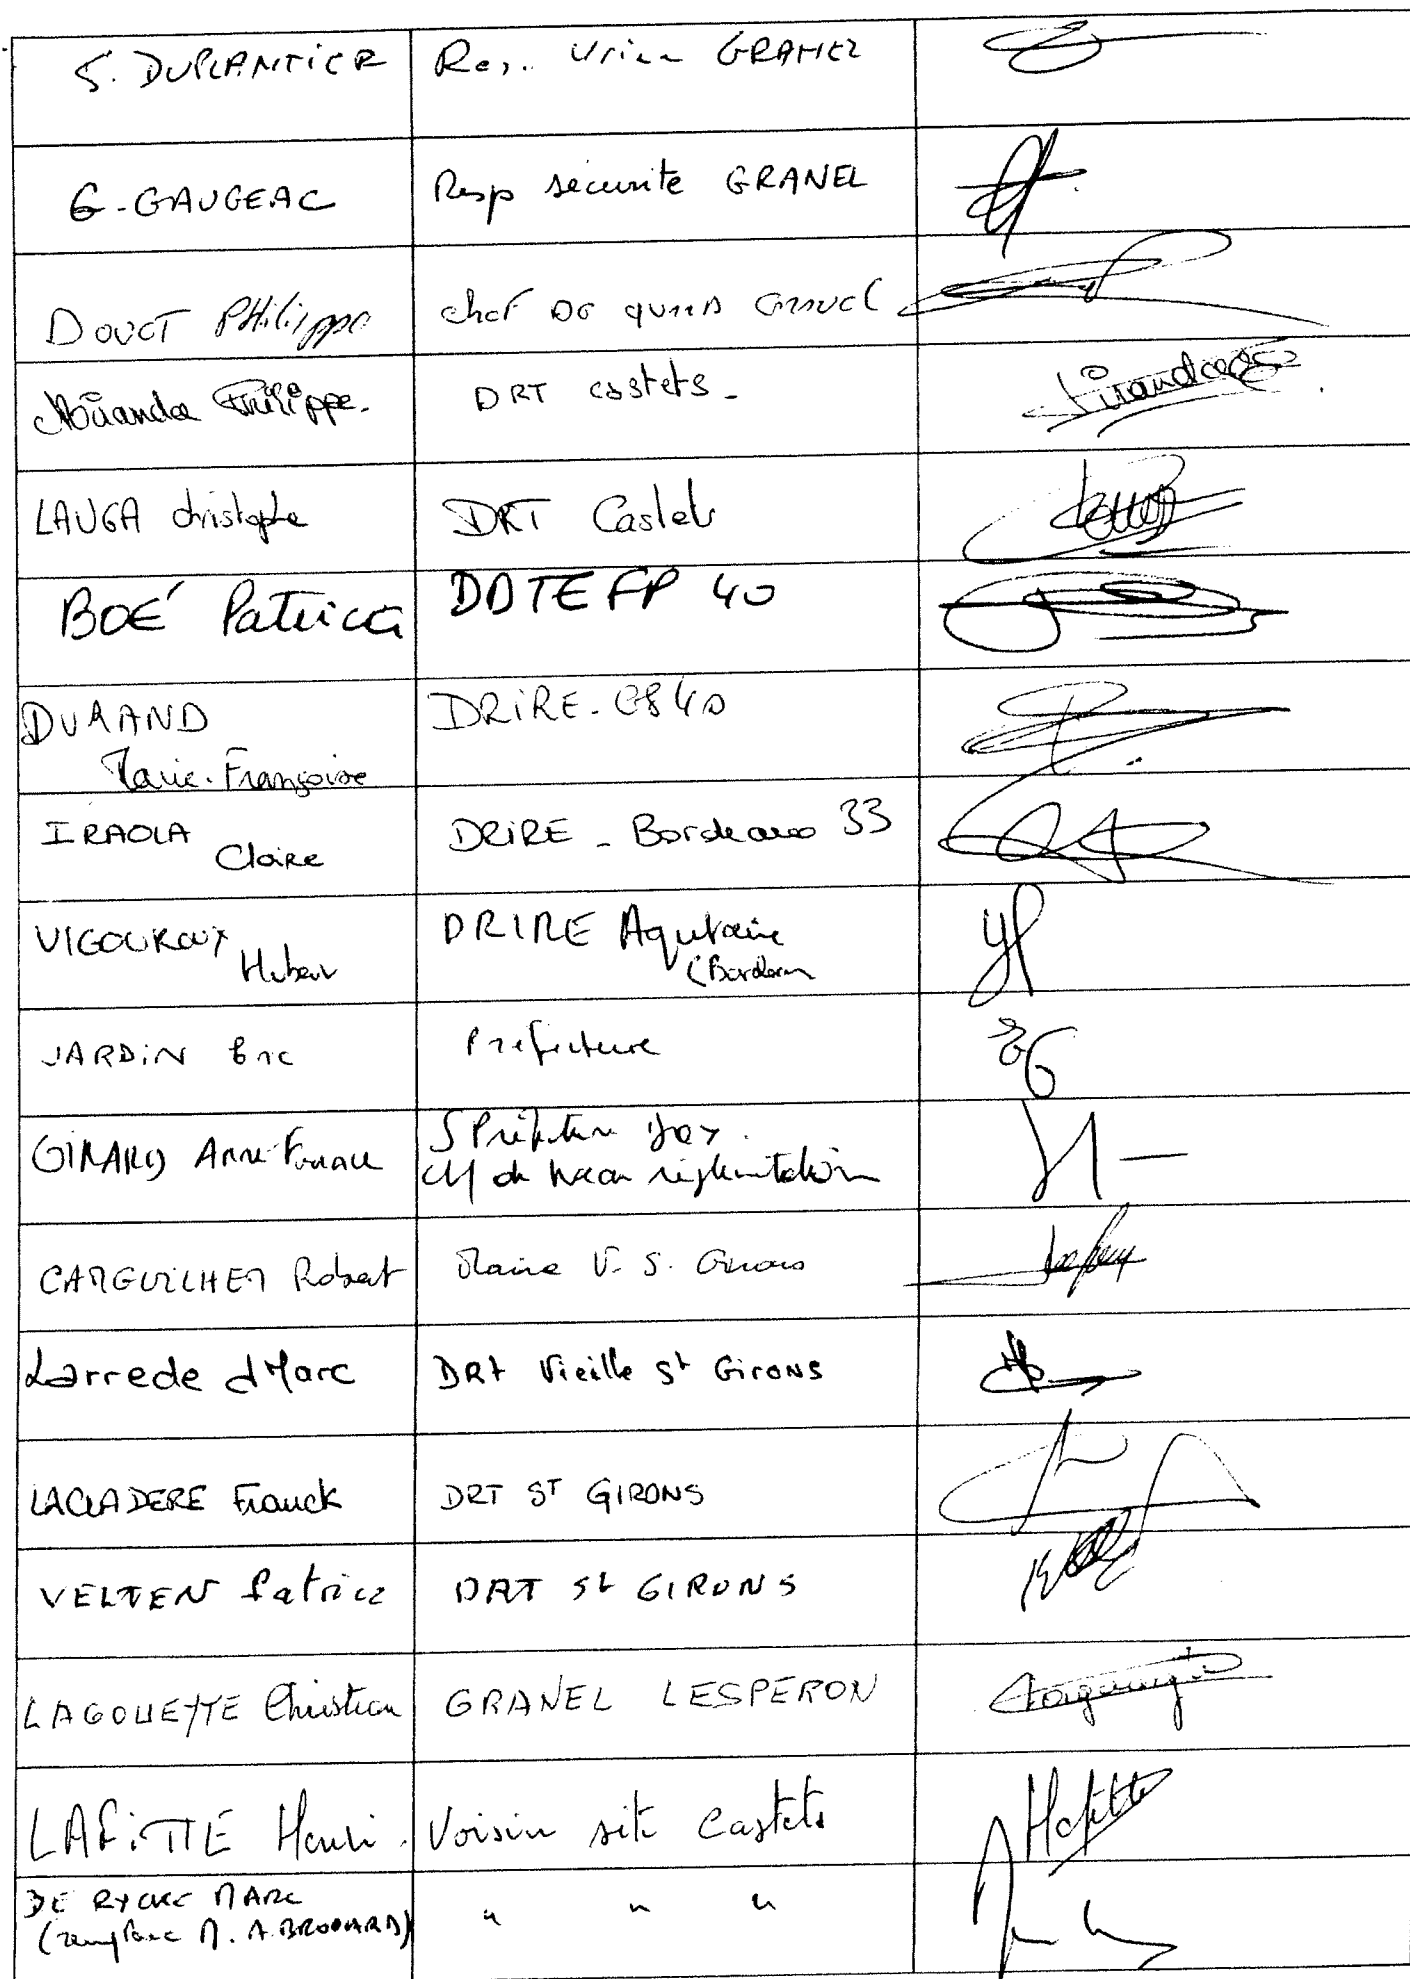 S. DUPLANTIER Res. Usine GRANEL
G. GAUGEAC Resp sécurité GRANEL
DOUCT PHilippe chef DE
Miranda Philippe. DRT castets.
LAUGA christophe DRT Castets
BOÉ Patricia DDTEFP 40
DURAND DRIRE - GS 40
Marie-Françoise
IRAOLA DRIRE - Bordeaux 33
Claire
VIGOUROUX DRIRE Aquitaine
Hubert (Bordeaux
JARDIN Eric Préfecture
GIRARD Anne-France S Préfecture Dax.
réglementation
CAMGUILHEM Robert Maire V. S. Girons
Larrede Marc DRT Vieille St GIRONS
LACLADERE Franck DRT ST GIRONS
VELTEN Patrice DRT St GIRONS
LAGOUEYTE Christian GRANEL LESPERON
LAFITTE Henri. Voisin site Castets
DE RYCKE MARC " " "
(remplace M. A. BROUARD)